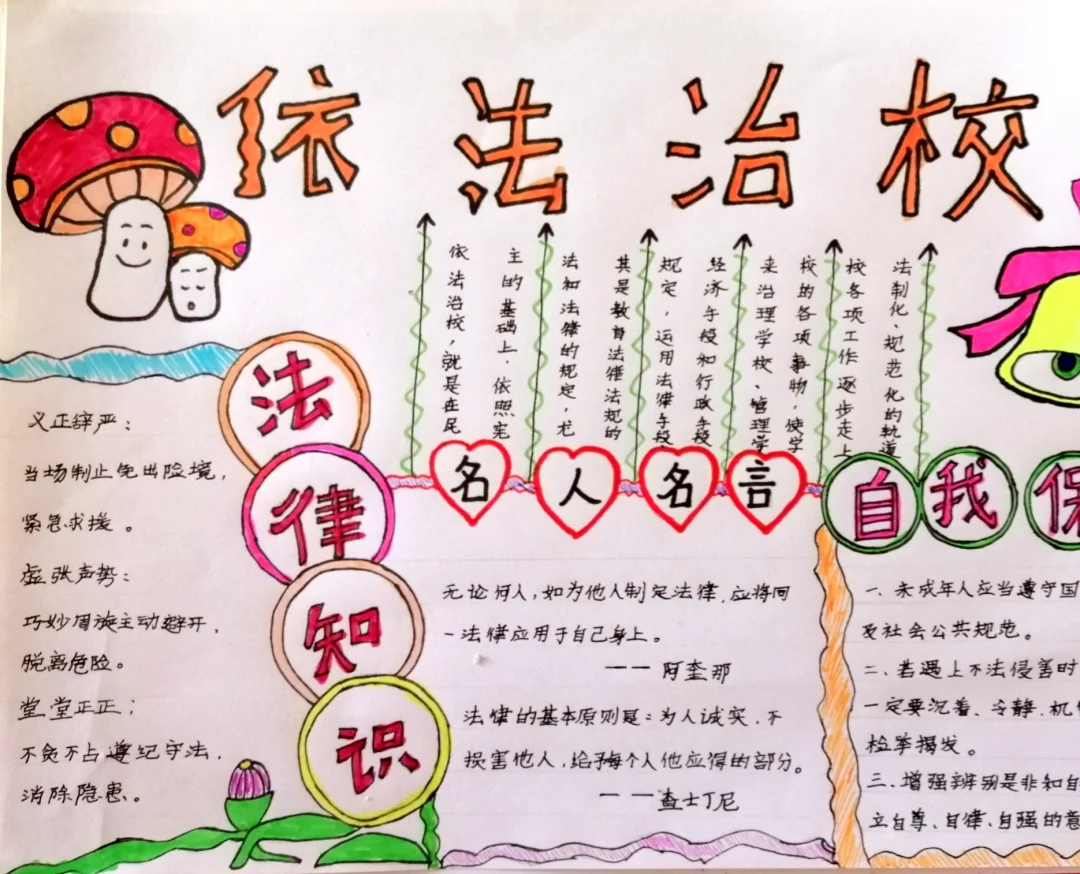 依法治校
依法治校，就是在民
主的基础上，依照宪
法和法律的规定，尤
其是教育法律法规的
规定，运用法律手段
经济手段和行政手段
来治理学校、管理学
校的各项事物，使学
校各项工作逐步走上
法制化、规范化的轨道
法律知识
义正辞严：
当场制止免出险境，
紧急求援。
虚张声势：
巧妙周旋主动避开，
脱离危险。
堂堂正正；
不贪不占遵纪守法，
消除隐患。
名人名言
无论何人，如为他人制定法律，应将同
一法律应用于自己身上。
——阿奎那
法律的基本原则是：为人诚实，不
损害他人，给予每个人他应得的部分。
——查士丁尼
自我保
一、未成年人应当遵守国
及社会公共规范。
二、若遇上不法侵害时
一定要沉着、冷静、机
检举揭发。
三、增强辨别是非和自
立自尊、自律、自强的意